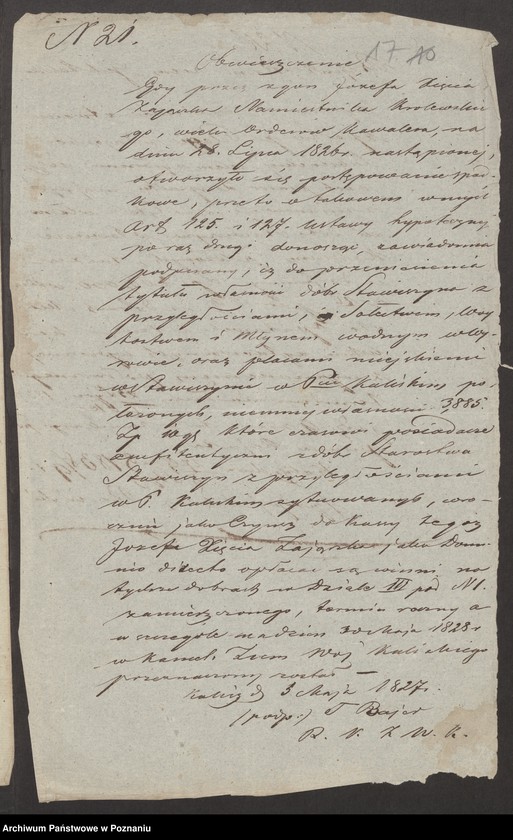 N 21.
17 10
Obwieszczenie
Gdy przez zgon Józefa Xięcia
Zajączka Namiestnika Królewskie-
go, wielu Orderów Kawalera, na
dniu 28. Lipca 1826 r. nastąpionej,
otworzyło się postępowanie spad-
kowe, przeto o takowem w myśl
Art 125. i 127. Ustawy hypoteczny
po raz drugi donosząc, zawiadomia
podpisany, iż do przeniesienia
tytułu własności dóbr Stawiszyna z
przyległościami, Sołectwem, Woy-
tostwem i Młynem wodnym w
oraz placami miejskiemi
w Stawiszynie w Pcie Kaliskim po-
łożonych, niemniej własności 3,885.
Z gr które czasowi posiadacze
emfiteutyczni z dóbr Starostwa
Stawiszyn z przyległościami
w P. Kaliskim sytuowanych, co-
cznie jako Czynsz do kassy tegoż
Józefa Xięcia Zajączka jako Domi-
nio directo opłacać są winni na
tychże dobrach w Dziale III pod N 1.
zamieszczonego, termin roczny a
w szczególe na dzień 30 Maja 1828 r
w Kancel. Ziem Woj Kaliskiego
przeznaczony został
Kalisz d 5 Maja 1827.
(podp:) T Bajer
R. K. Z. W. K.
Archiwum Państwowe w Poznaniu